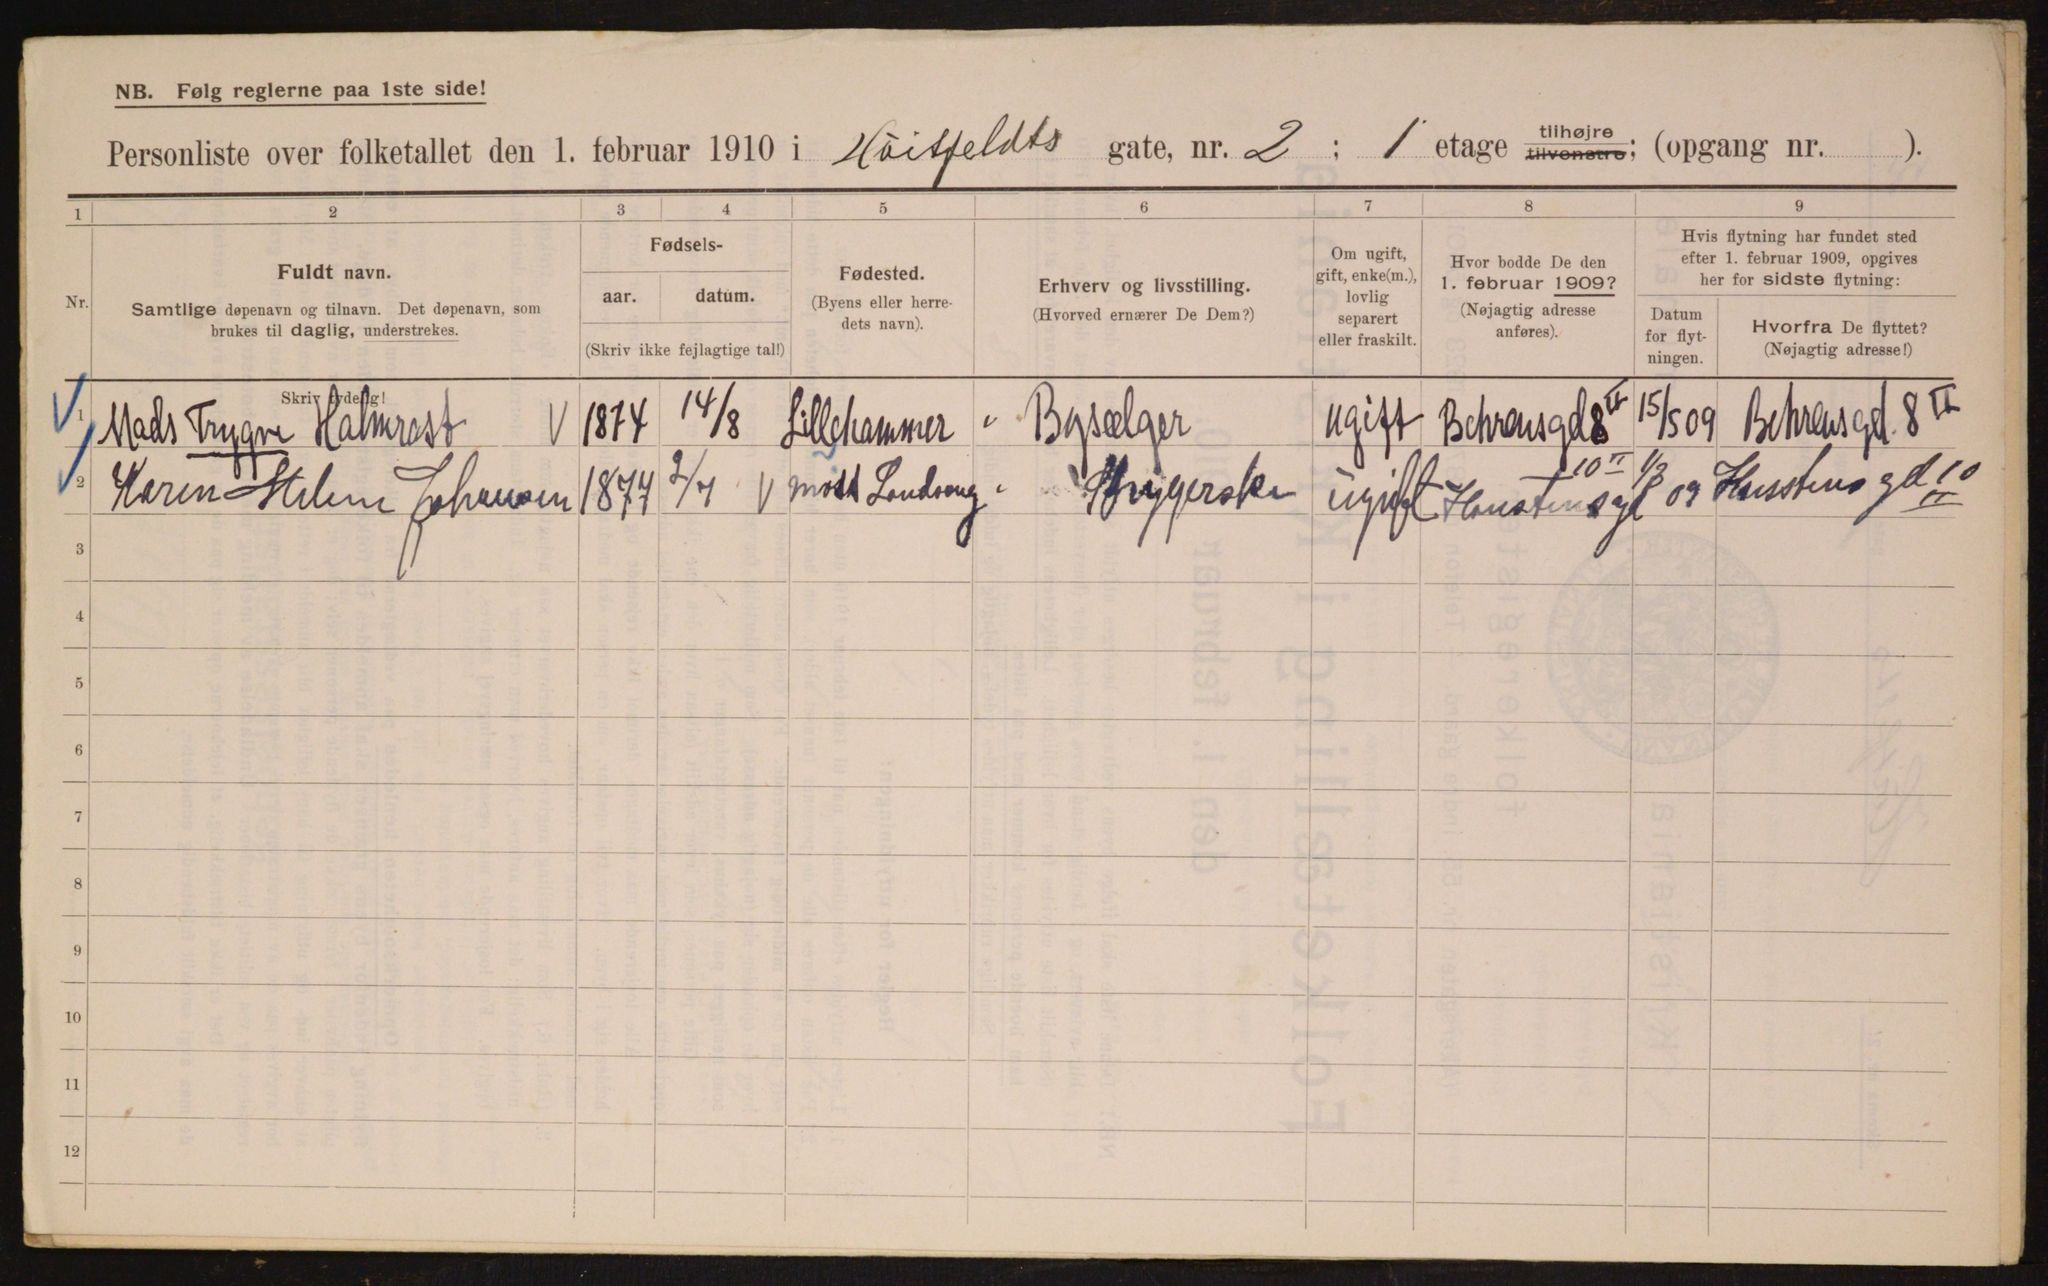 NB. Følg reglerne paa 1ste side!
Personliste over folketallet den 1. februar 1910 i Höitfeldts gate, nr. 2 ; 1 etage tilhøjre tilvenstre; (opgang nr. ).
1 2 3 4 5 6 7 8 9
Nr.
Fuldt navn.
Samtlige døpenavn og tilnavn. Det døpenavn, som
brukes til daglig, understrekes.
Skriv tydelig!
Fødsels-
aar. datum.
(Skriv ikke fejlagtige tal!)
Fødested.
(Byens eller herre-
dets navn).
Erhverv og livsstilling.
(Hvorved ernærer De Dem?)
Om ugift,
gift, enke(m.),
lovlig
separert
eller fraskilt.
Hvor bodde De den
1. februar 1909?
(Nøjagtig adresse
anføres).
Hvis flytning har fundet sted
efter 1. februar 1909, opgives
her for sidste flytning:
Datum
for flyt-
ningen.
Hvorfra De flyttet?
(Nøjagtig adresse!)
1 Mads Trygve Halmrast 1874 14/8 Lillehammer Bysælger ugift Behrensgd 8 II 15/5 09 Behrensgd. 8 II
2 Karen Helene Johansen 1877 2/7 ugift 10 II 09 gd 10 II
3
4
5
6
7
8
9
10
11
12